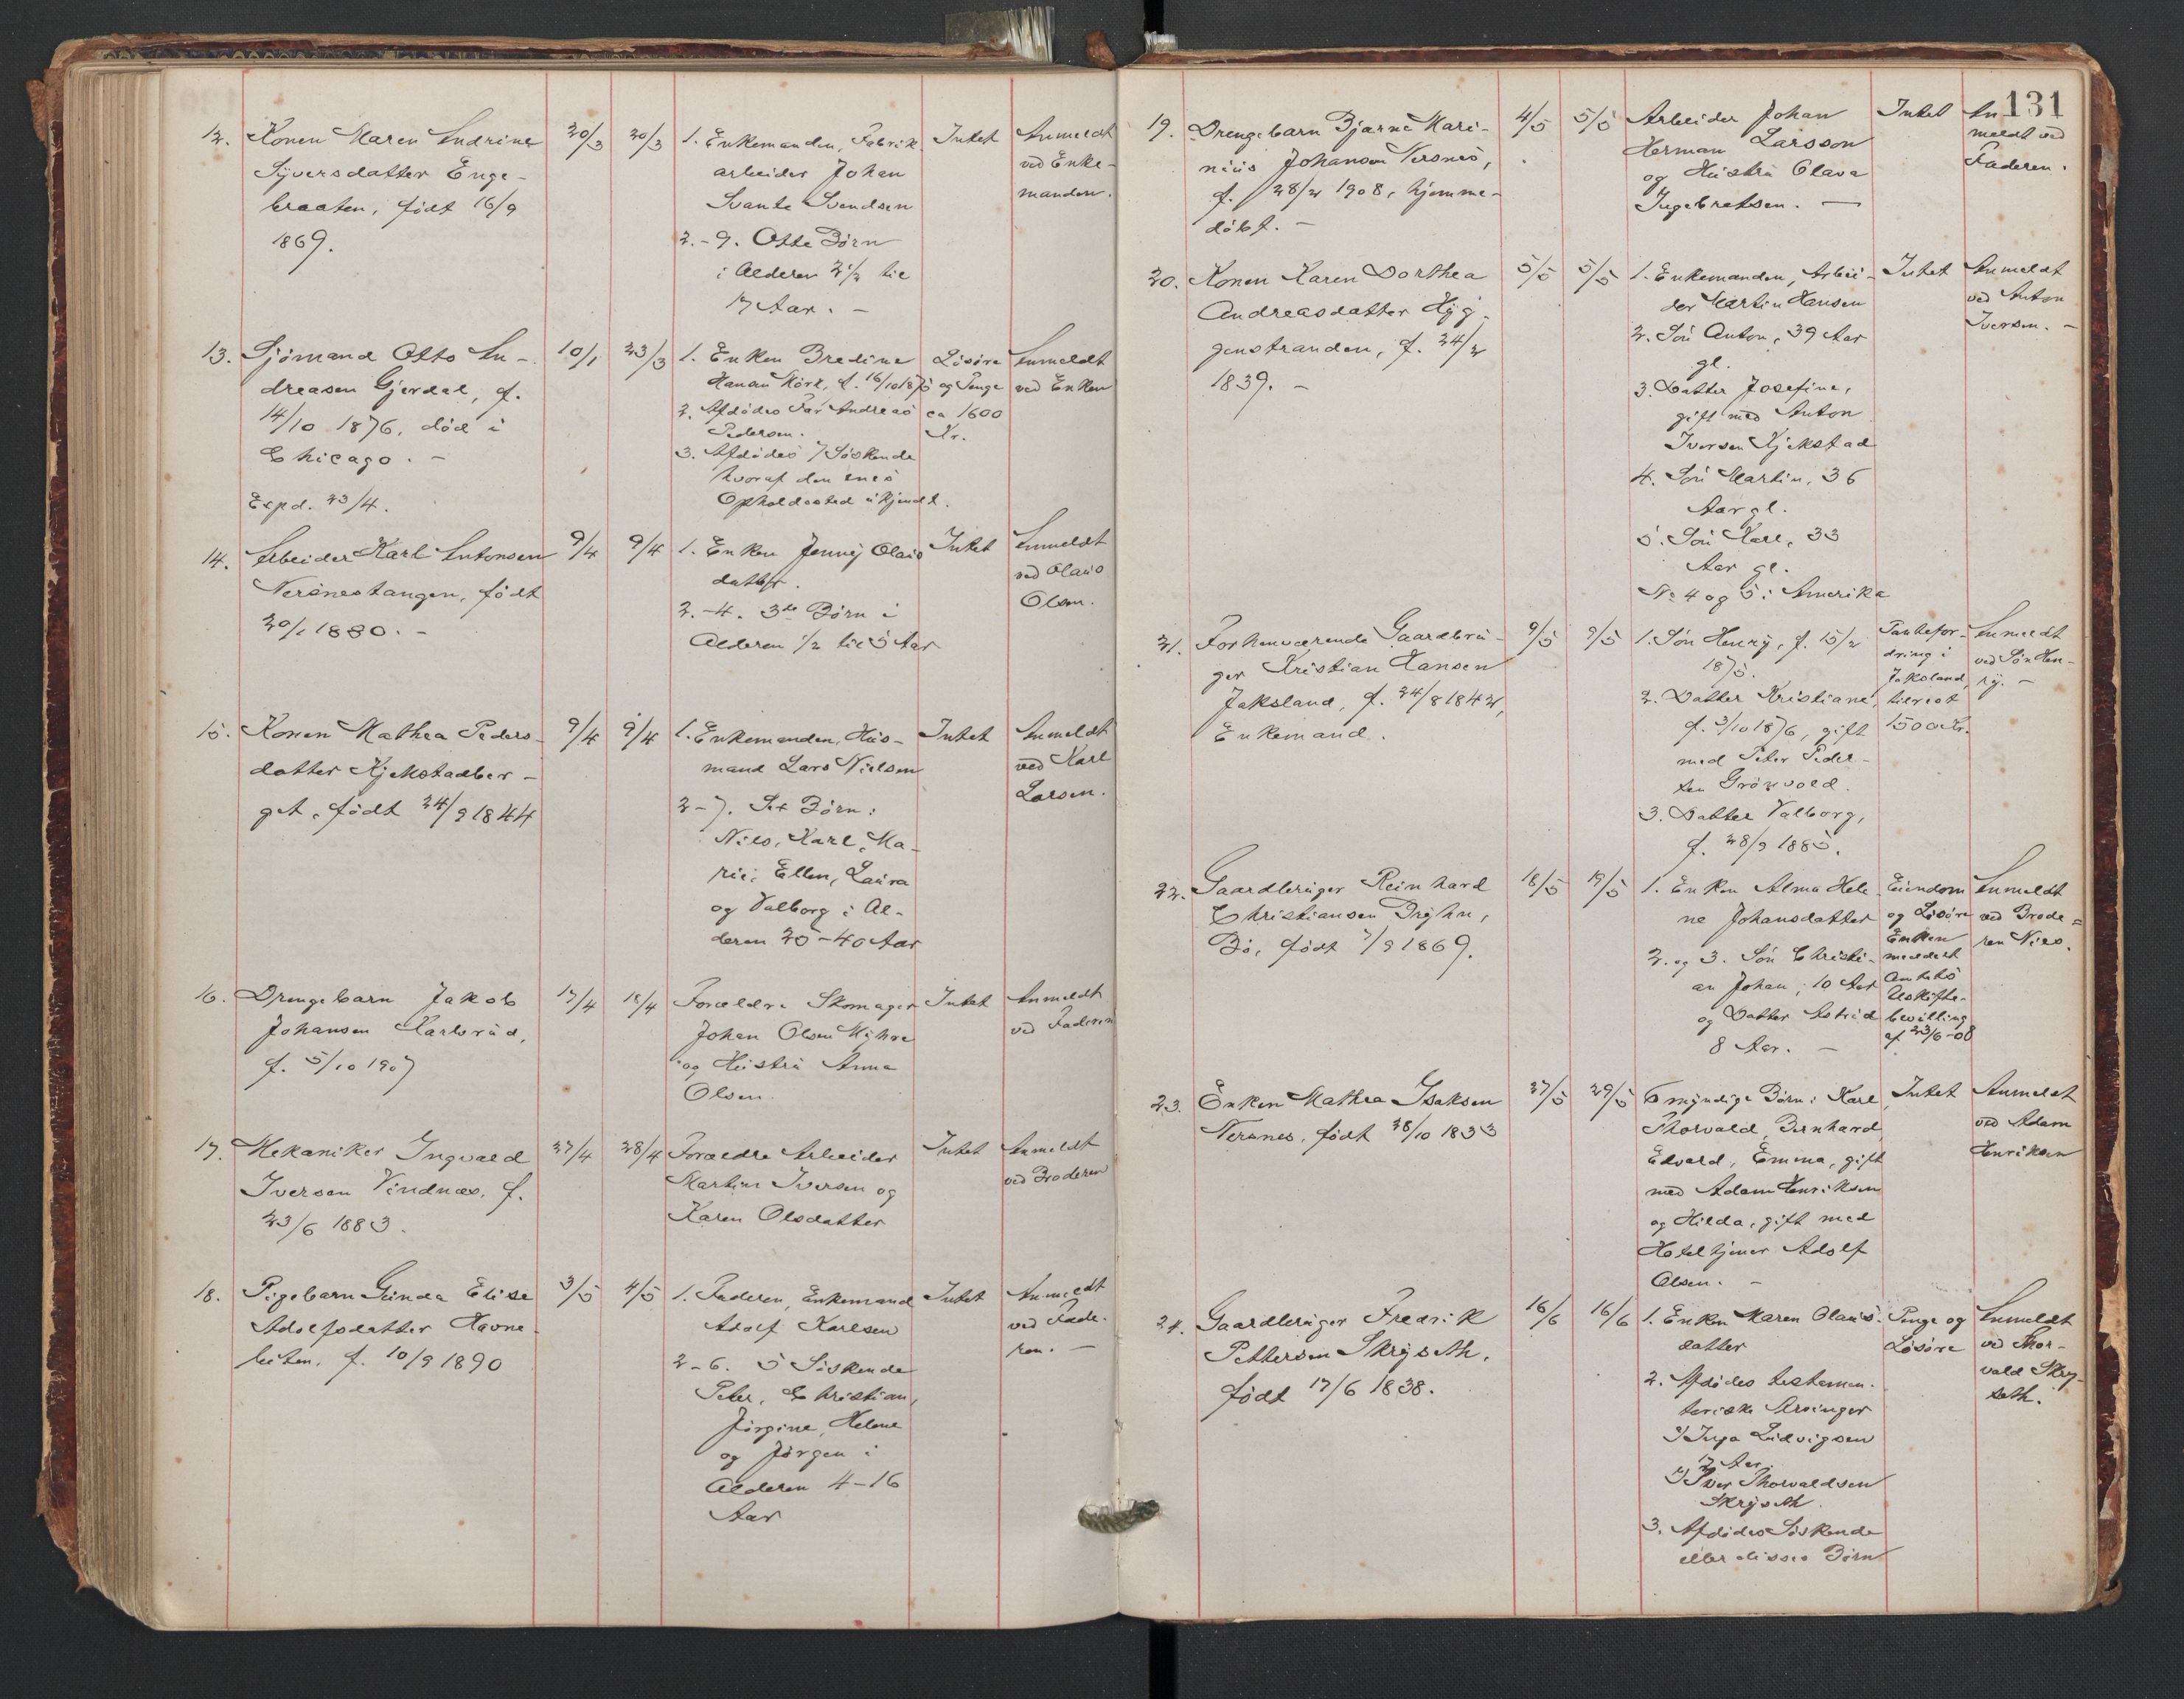 12. Konen Maren Andrine
Syversdatter Enge-
braaten, født 16/9
1869.
20/3
20/3
1. Enkemanden, Fabrik
arbeider Johan
Svante Svendsen
2.-9. Otte Børn
i Alderen 2 1/2 til
17 Aar. -
Intet
Anmeldt
ved Enke-
manden.
13. Sjömand Otto An-
dreasen Gjerdal, f.
14/10 1876, död i
Chicago. -
Expd. 23/4.
10/1
23/3
1. Enken Bredine
Hansen Mörk, f. 16/10 1875
2. Afdødes Far Andreas
Pedersen.
3. Afdødes 7 Søskende
hvoraf den enes
Opholdssted ukjendt.
Løsøre
og Penge
ca 1600
Kr.
Anmeldt
ved Enken
14. Arbeider Karl Antonsen
Nersnestangen, født
20/1 1880. -
9/4
9/4
1. Enken Jenny Olaus
datter.
2.-4. 3de Børn i
Alderen 1/2 til 5 Aar
Intet
Anmeldt
ved Olaus
Olsen.
15. Konen Mathea Peders-
datter Kjekstadber-
get, født 24/9 1844
9/4
9/4
1. Enkemanden, Hus-
mand Lars Nielsen
2-7. Sex Børn:
Nils, Karl, Ma-
rie, Ellen, Laura
og Valborg i Al-
deren 25-40 Aar
Intet
Anmeldt
ved Karl
Larsen.
16. Drengebarn Jakob
Johansen Karlsrud,
f. 5/10 1907
17/4
18/4
Forældre Skomager
Johan Olsen Myhre
og Hustru Anna
Olsen.
Intet
Anmeldt
ved Faderen
17. Mekaniker Ingvald
Iversen Vindnæs, f.
23/6 1883.
27/4
28/4
Forældre Arbeider
Martin Iversen og
Karen Olsdatter
Intet
Anmeldt
ved Broderen
18. Pigebarn Gunda Elise
Adolfsdatter Havne-
biten, f. 10/9 1890
3/5
4/5
1. Faderen, Enkemand
Adolf Karlsen
2-6. 5 Søskende
Peter, Christian,
Jörgine, Helene
og Jørgen i
Alderen 4-16
Aar
Intet
Anmeldt
ved Fade-
ren. -
131
19. Drengebarn Bjarne Mari-
nius Johansen Nersnes,
f. 28/2 1908, hjemme-
döbt. -
4/5
5/5
Arbeider Johan
Herman Larsson
og Hustru Olava
Ingebretsen. -
Intet
An
meldt ved
Faderen.
20. Konen Karen Dorthea
Andreasdatter Hyg-
genstranden, f. 24/2
1839. -
5/5
5/5
1. Enkemanden, Arbei-
der Martin Hansen
2. Søn Anton, 39 Aar
gl.
3. Datter Josefine,
gift med Anton
Iversen Kjekstad
4. Søn Martin, 36
Aar gl.
5. Søn Karl, 33
Aar gl.
No 4 og 5 i Amerika
Intet
Anmeldt
ved Anton
Iversen. -
21. Forhenværende Gaardbru-
ger Kristian Hansen
Jaksland, f. 24/8 1842,
Enkemand.
9/5
9/5
1. Søn Henry, f. 15/2
1875.
2. Datter Kristiane,
f. 3/10 1876, gift
med Peter Peder-
sen Grönvold.
3. Datter Valborg,
f. 28/9 1885.
Pantefor-
dring i
Jaksland,
tilrest
1500 Kr.
Anmeldt
ved Søn Hen-
ry. -
22. Gaardbruger Reinhard
Christiansen Bryhn,
Bø, født 7/9 1869.
18/5
19/5
1. Enken Alma Hele-
ne Johansdatter
2. og 3. Søn Christi-
an Johan, 10 Aar
og Datter Astrid
8 Aar. -
Eiendom
og Løsøre
Enken
meddelt
Amtets
Uskifte-
bevilling
af 23/6-08
Anmeldt
ved Brode=
ren Niels.
23. Enken Mathea Isaksen
Nersnes, født 28/10 1833
27/5
29/5
6 myndige Børn: Karl,
Thorvald, Bernhard,
Edvard, Emma, gift
med Adam Henriksen
og Hilda, gift med
Hoteltjener Adolf
Olsen. -
Intet
Anmeldt
ved Adam
Henriksen
24. Gaardbruger Fredrik
Pettersen Skryseth,
født 17/6 1838.
16/6
16/6
1. Enken Maren Olaus-
datter
2. Afdødes testamen-
tariske Arvinger
Inga Ludvigsen
17 Aar.
Iver Thorvaldsen
Skryseth.
3. Afdødes Søskende
eller disses Børn
Penge og
Løsøre
Anmeldt
ved Thor-
vald Skry-
seth.